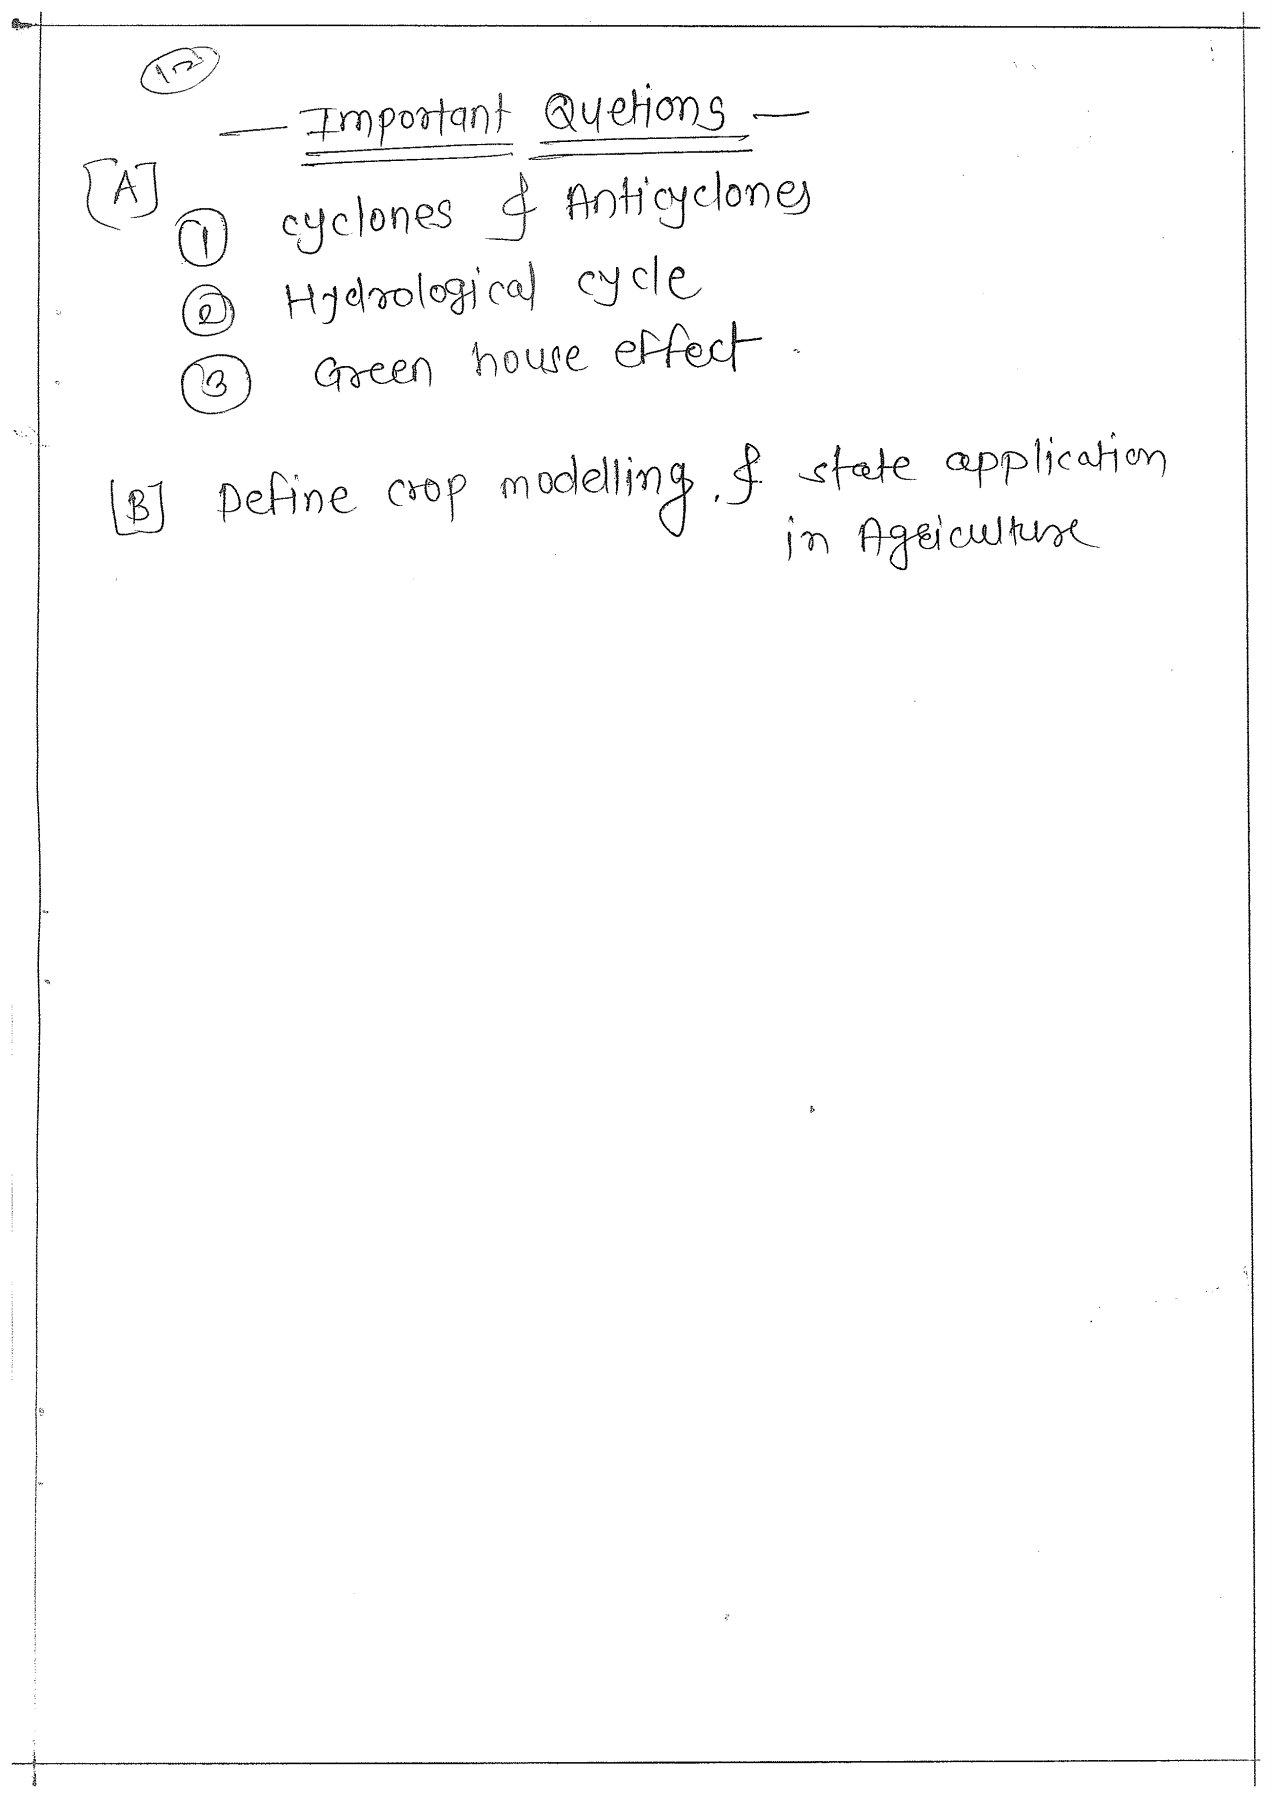 12
— Important Quetions —
[A]
1 cyclones & Anticyclones
2 Hydrological cycle
3 Green house effect
[B] Define crop modelling. & state application
in Agriculture